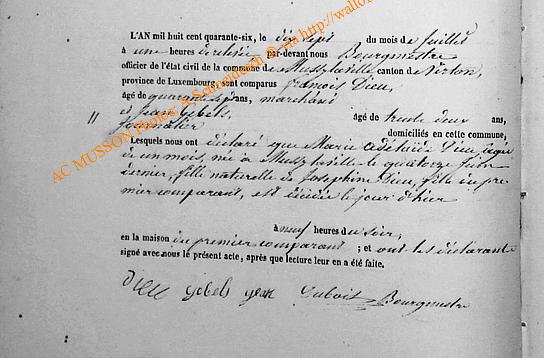 L'AN mil huit cent quarante-six, le dix sept du mois de juillet
à une heures de relevée par-devant nous Bourgmestre
officier de l'état civil de la commune de Mussy la ville canton de Virton,
province de Luxembourg, sont comparus françois Dieu,
âgé de quarante sept ans, marchand
et jean Gobels, âgé de trente deux ans,
journalier domiciliés en cette commune,
Lesquels nous ont déclaré que Marie adélaïde Dieu agée
de un mois, née à Mussy la ville le quatorze juin
dernier, fille naturelle de Josephine Dieu, fille du pre
mier comparant, est décédée le jour d'hier
à neuf heures du soir,
en la maison du premier comparant ; et ont les déclarants
signé avec nous le présent acte, après que lecture leur en a été faite.
Dieu gobels jean Dubois Bourgmestre
AC MUSSON Province A.S. death © via http://wallo